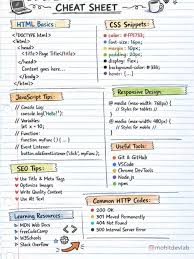 CHEAT SHEET
HTML Basics:
<!DOCTYPE html>
<html>
<head>
<title>Page Title</title>
</head>
<body>
Content goes here...
</body>
</html>
CSS Snippets:
color: #FF5733;
font-size: 16px;
margin: 10px;
padding: 20px;
display: flex;
background-color: #333;
border: 1px
JavaScript Tips:
// Console Log
console.log("Hello!");
// Variables
let x = 10;
// Function
// Event Listener
Responsive Design:
@media (max-width: 768px) {
/* Styles for tablet */
}
@media (max-width: 480px) {
/* Styles for mobile */
}
SEO Tips:
Use Title & Meta Tags
Optimize Images
Write Quality Content
Use Alt Text
Useful Tools:
Git & GitHub
VSCode
Chrome DevTools
Node.js
Figma
Learning Resources:
MDN Web Docs
FreeCodeCamp
W3Schools
Stack Overflow
Common HTTP Codes:
200 OK
301 Moved Permanently
404 Not Found
500 Internal Server Error
mohitdevlab